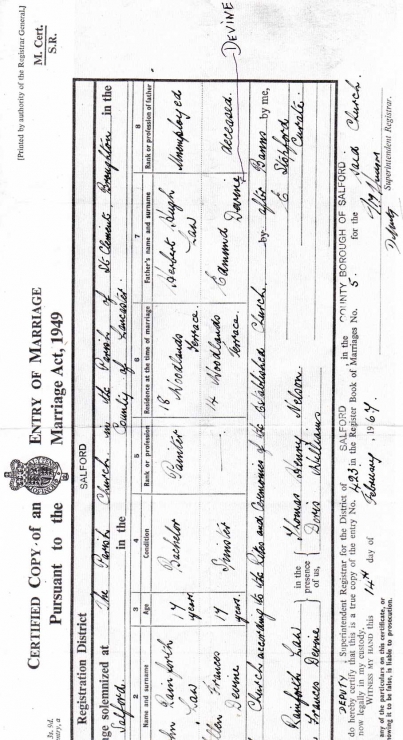 [Printed by authority of the Registrar General.]
M. Cert.
S.R.
CERTIFIED COPY of an ENTRY OF MARRIAGE
Pursuant to the Marriage Act, 1949
Registration District SALFORD
age solemnized at The Parish Church in the Parish of St Clement, Broughton in the
Salford. in the County of Lancaster
2 3 4 5 6 7 8
Name and surname Age Condition Rank or profession Residence at the time of marriage Father's name and surname Rank or profession of father
Rainforth Law 19 years. Bachelor Painter 18 Woodlands Terrace. Herbert Hugh Law Unemployed
Frances Devine 19 years. Spinster — 14 Woodlands Terrace. Edmund Devine deceased.
DEVINE
Church according to the Rites and Ceremonies of the Established Church. by after Banns by me,
Rainforth Law
Frances Devine
in the presence of us,
Thomas Henry Nelson
Doris Williams
E Stopford
Curate.
DEPUTY, Superintendent Registrar for the District of SALFORD in the COUNTY BOROUGH OF SALFORD
do hereby certify that this is a true copy of the entry No. 423 in the Register Book of Marriages No. 5. for the said Church.
now legally in my custody.
WITNESS MY HAND this 14th day of February, 1967.
Deputy Superintendent Registrar.
any of the particulars on this certificate, or
nowing it to be false, is liable to prosecution.